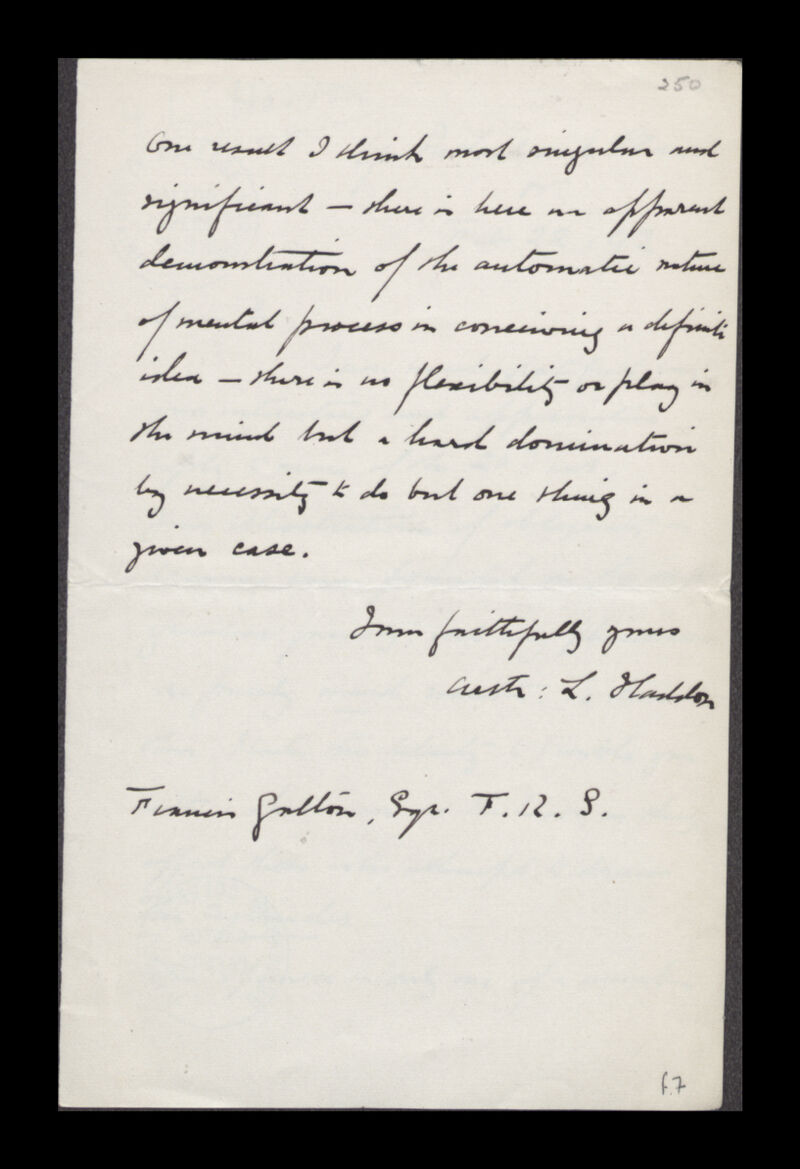 250
One result I think most singular and
significant — there is here an apparent
demonstration of the automatic nature
of mental process in conceiving a definite
idea — there is no flexibility or play in
the mind but a hard domination
by necessity to do but one thing in a
given case.
I am faithfully yours
L. Haddon
Francis Galton, Esqr. F. R. S.
f.7